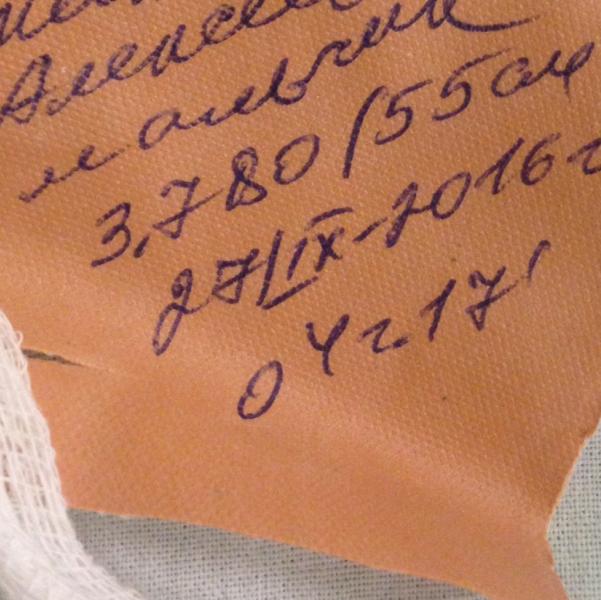 мальчик
3,780/55см
27/IX-2016г
04ч17'